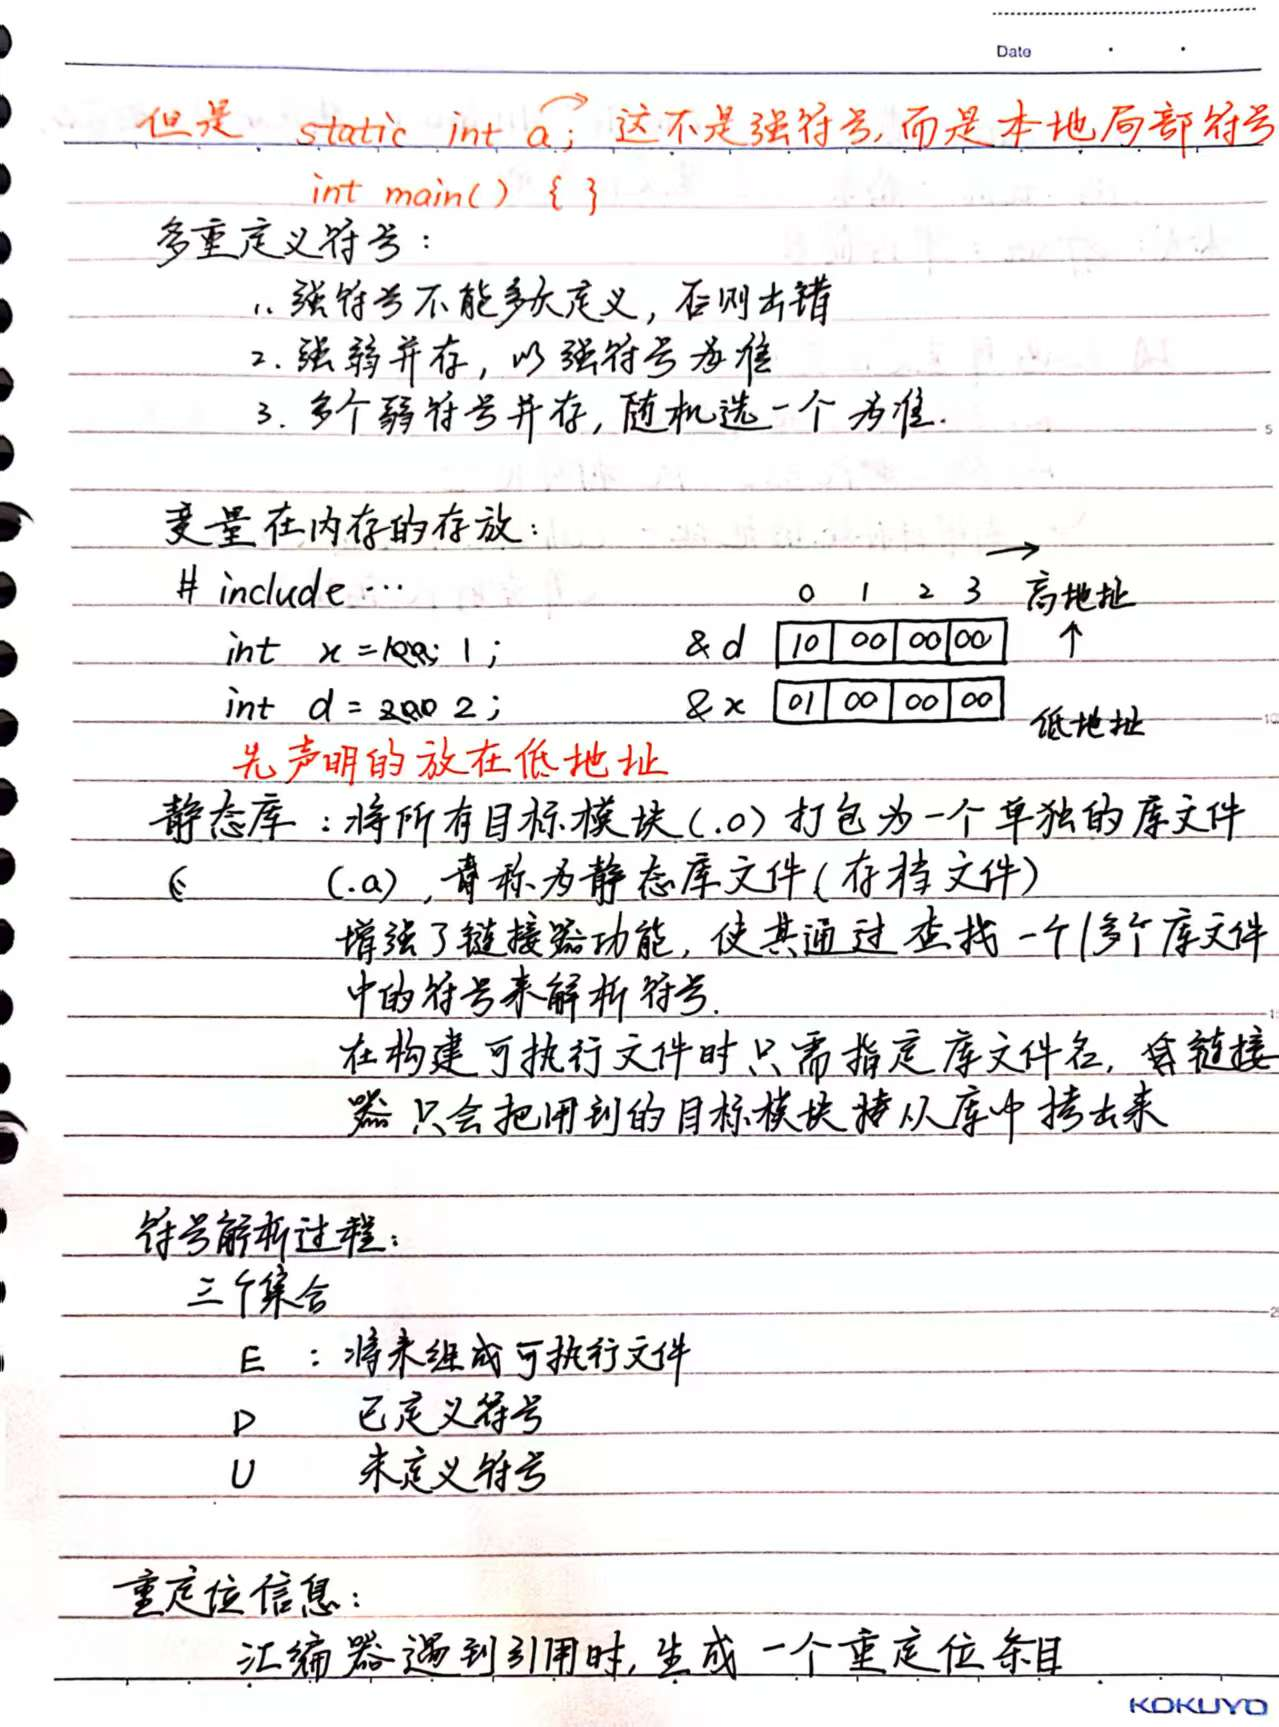 Date
但是 static int a; 这不是强符号,而是本地局部符号
int main() { }
多重定义符号:
1. 强符号不能多次定义, 否则出错
2. 强弱并存, 以强符号为准
3. 多个弱符号并存, 随机选一个为准.
5
变量在内存的存放:
# include … 0 1 2 3 高地址
int x = 1; &d 10 00 00 00 ↑
int d = 2; &x 01 00 00 00 低地址
10
先声明的放在低地址
静态库:将所有目标模块(.o)打包为一个单独的库文件
(.a), 称为静态库文件(存档文件)
增强了链接器功能, 使其通过查找一个/多个库文件
中的符号来解析符号.
在构建可执行文件时只需指定库文件名, 链接
器只会把用到的目标模块从库中拷出来
符号解析过程:
三个集合
E : 将来组成可执行文件
D 已定义符号
U 未定义符号
重定位信息:
汇编器遇到引用时, 生成一个重定位条目
KOKUYO